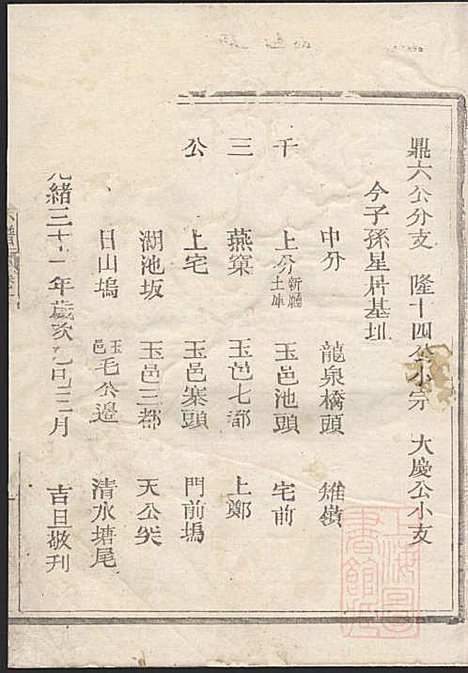 鼎六公分支 隆十四公小宗 大慶公小支
今子孫星居基址
中分 龍泉橋頭 雉嶺
千 上分新廳土庫 玉邑池頭 宅前
三 燕窠 玉邑七都 上鄭
公 上宅 玉邑寨頭 門前塢
湖池坂 玉邑三都 天公尖
日山塢 玉邑毛公邉 清水塘尾
光緒三十一年歲次乙巳三月 吉旦敬刊
上海圖書館藏